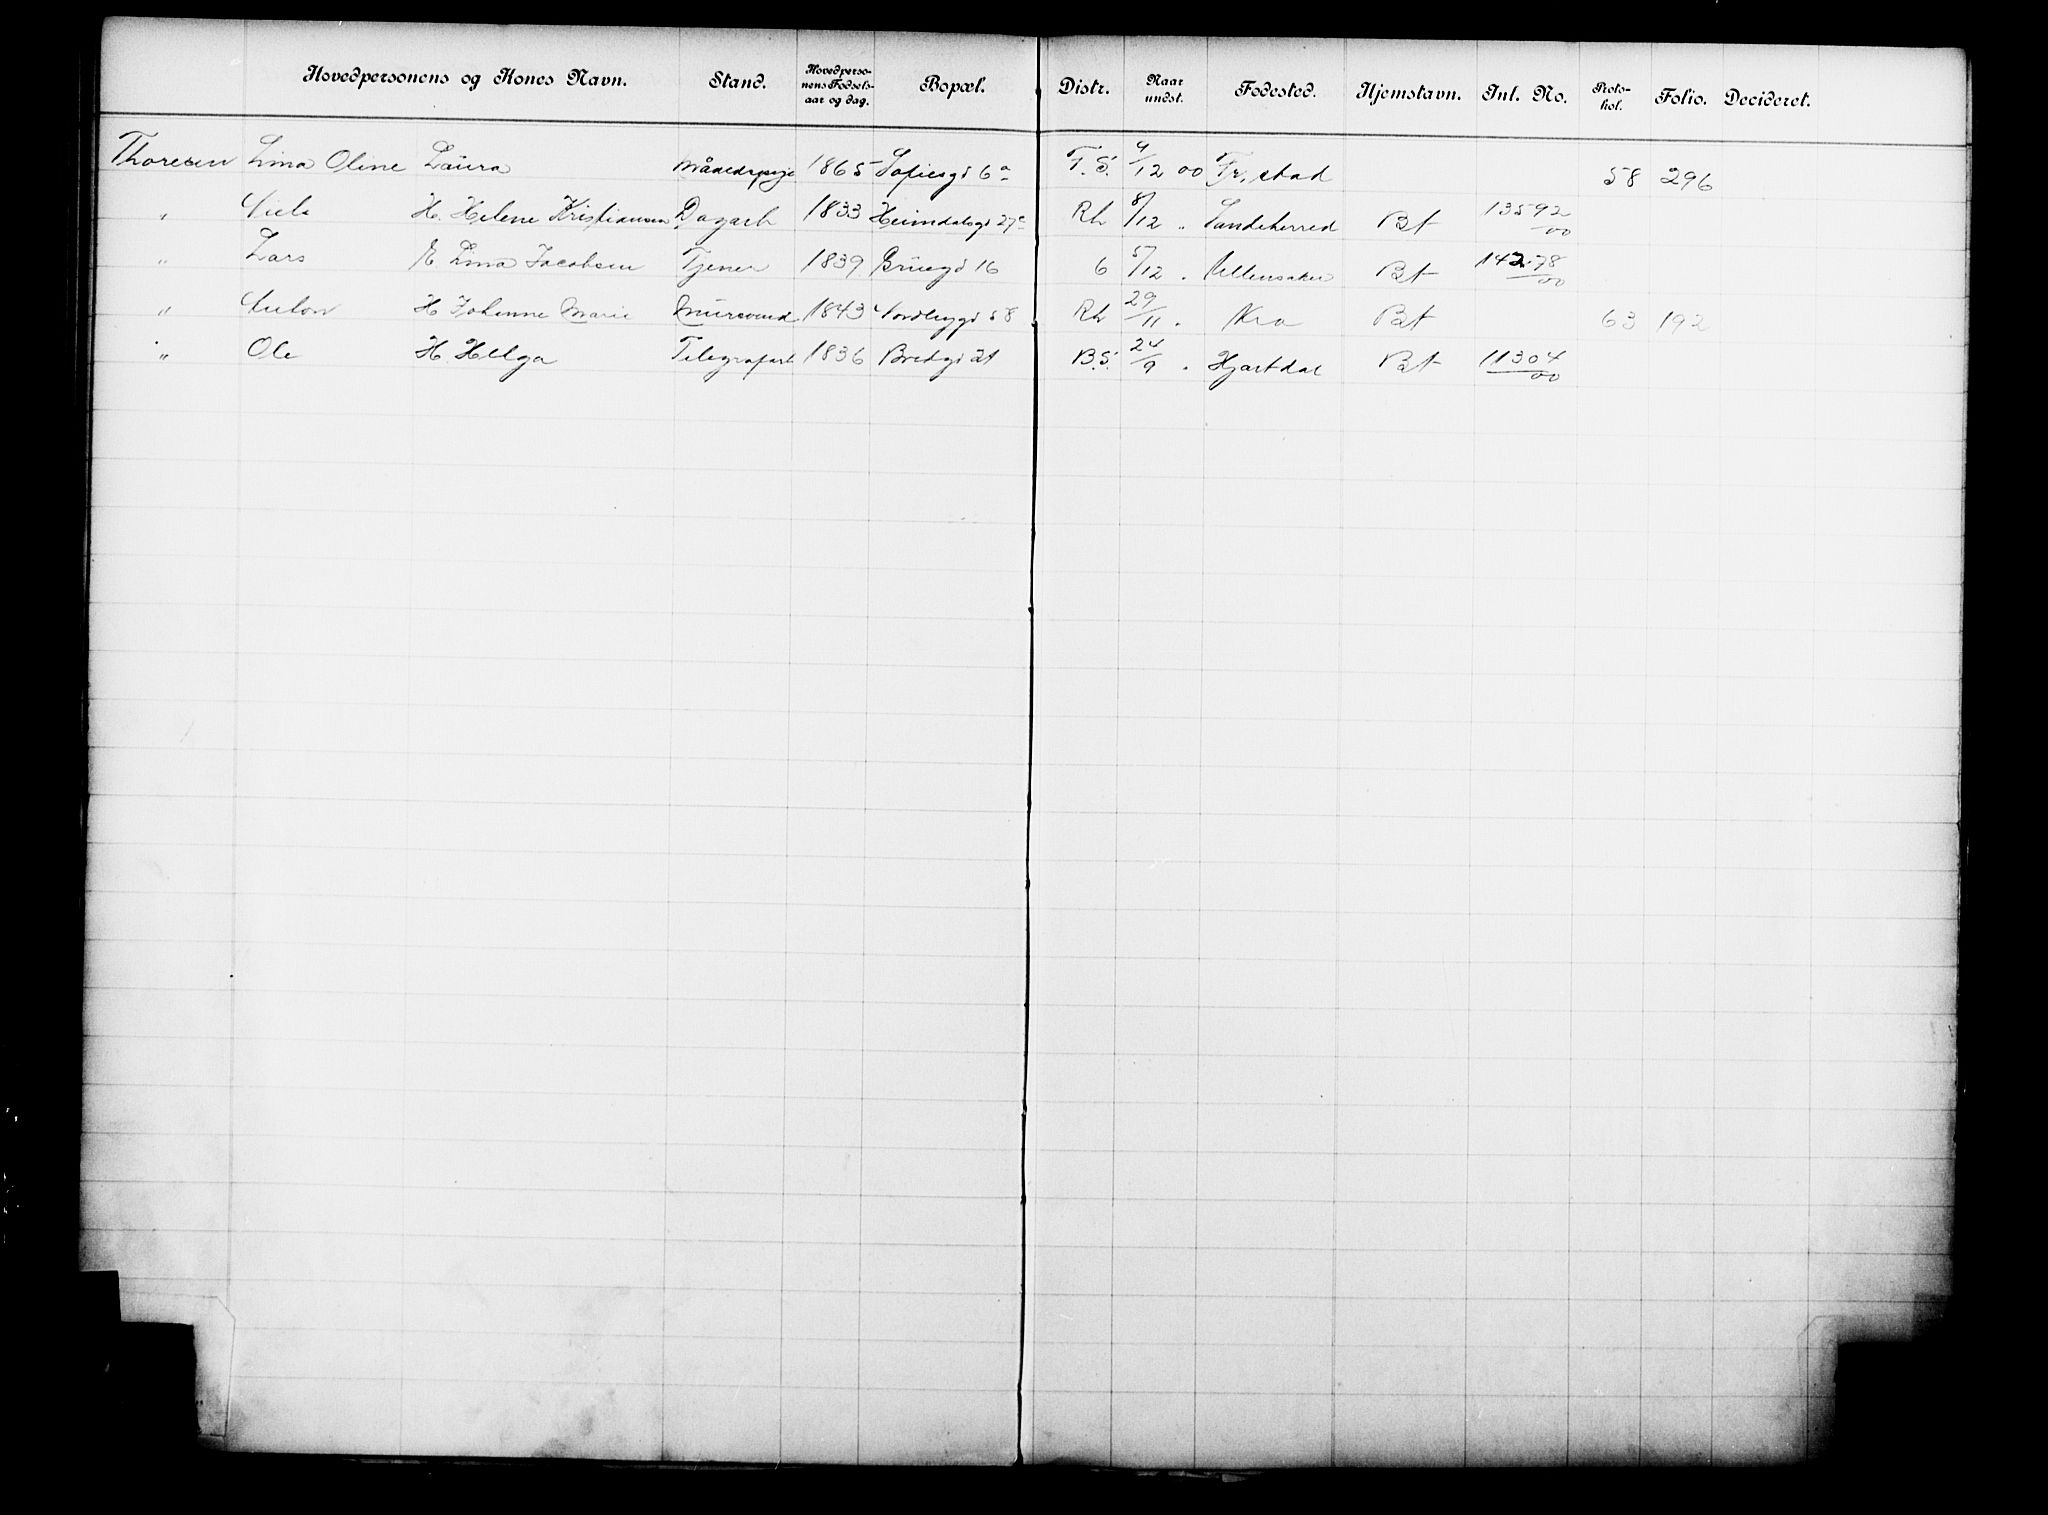 Hovedpersonens og Kones Navn. Stand. Hovedpersonens Fødselsaar og dag. Bopæl. Distr. Naar undst. Fødested. Hjemstavn. Inl. No. Protokol. Folio. Decideret.
Thoresen Lina Oline Laura 1865 Sofiesgd 6a T. S. 4/12 00 Fr.stad 58 296
" Niels H. Helene Kristiansen Dagarb 1833 Heimdalsgd 27c Rh 8/12 " Sandeherred Bt 13592/00
" Lars E. Lina Jacobsen Tjener 1839 Grüegd 16 6 5/12 " Ullensaker Bt 14278/00
" Anton H Johanne Marie Muirsvend 1843 Nordbygd 58 Rh 29/11 " Kra Bt 63 192
" Ole H. Helga Telegrafarb 1836 Bredgd 21 B. S. 24/9 " Hjartdal Bt 11304/00